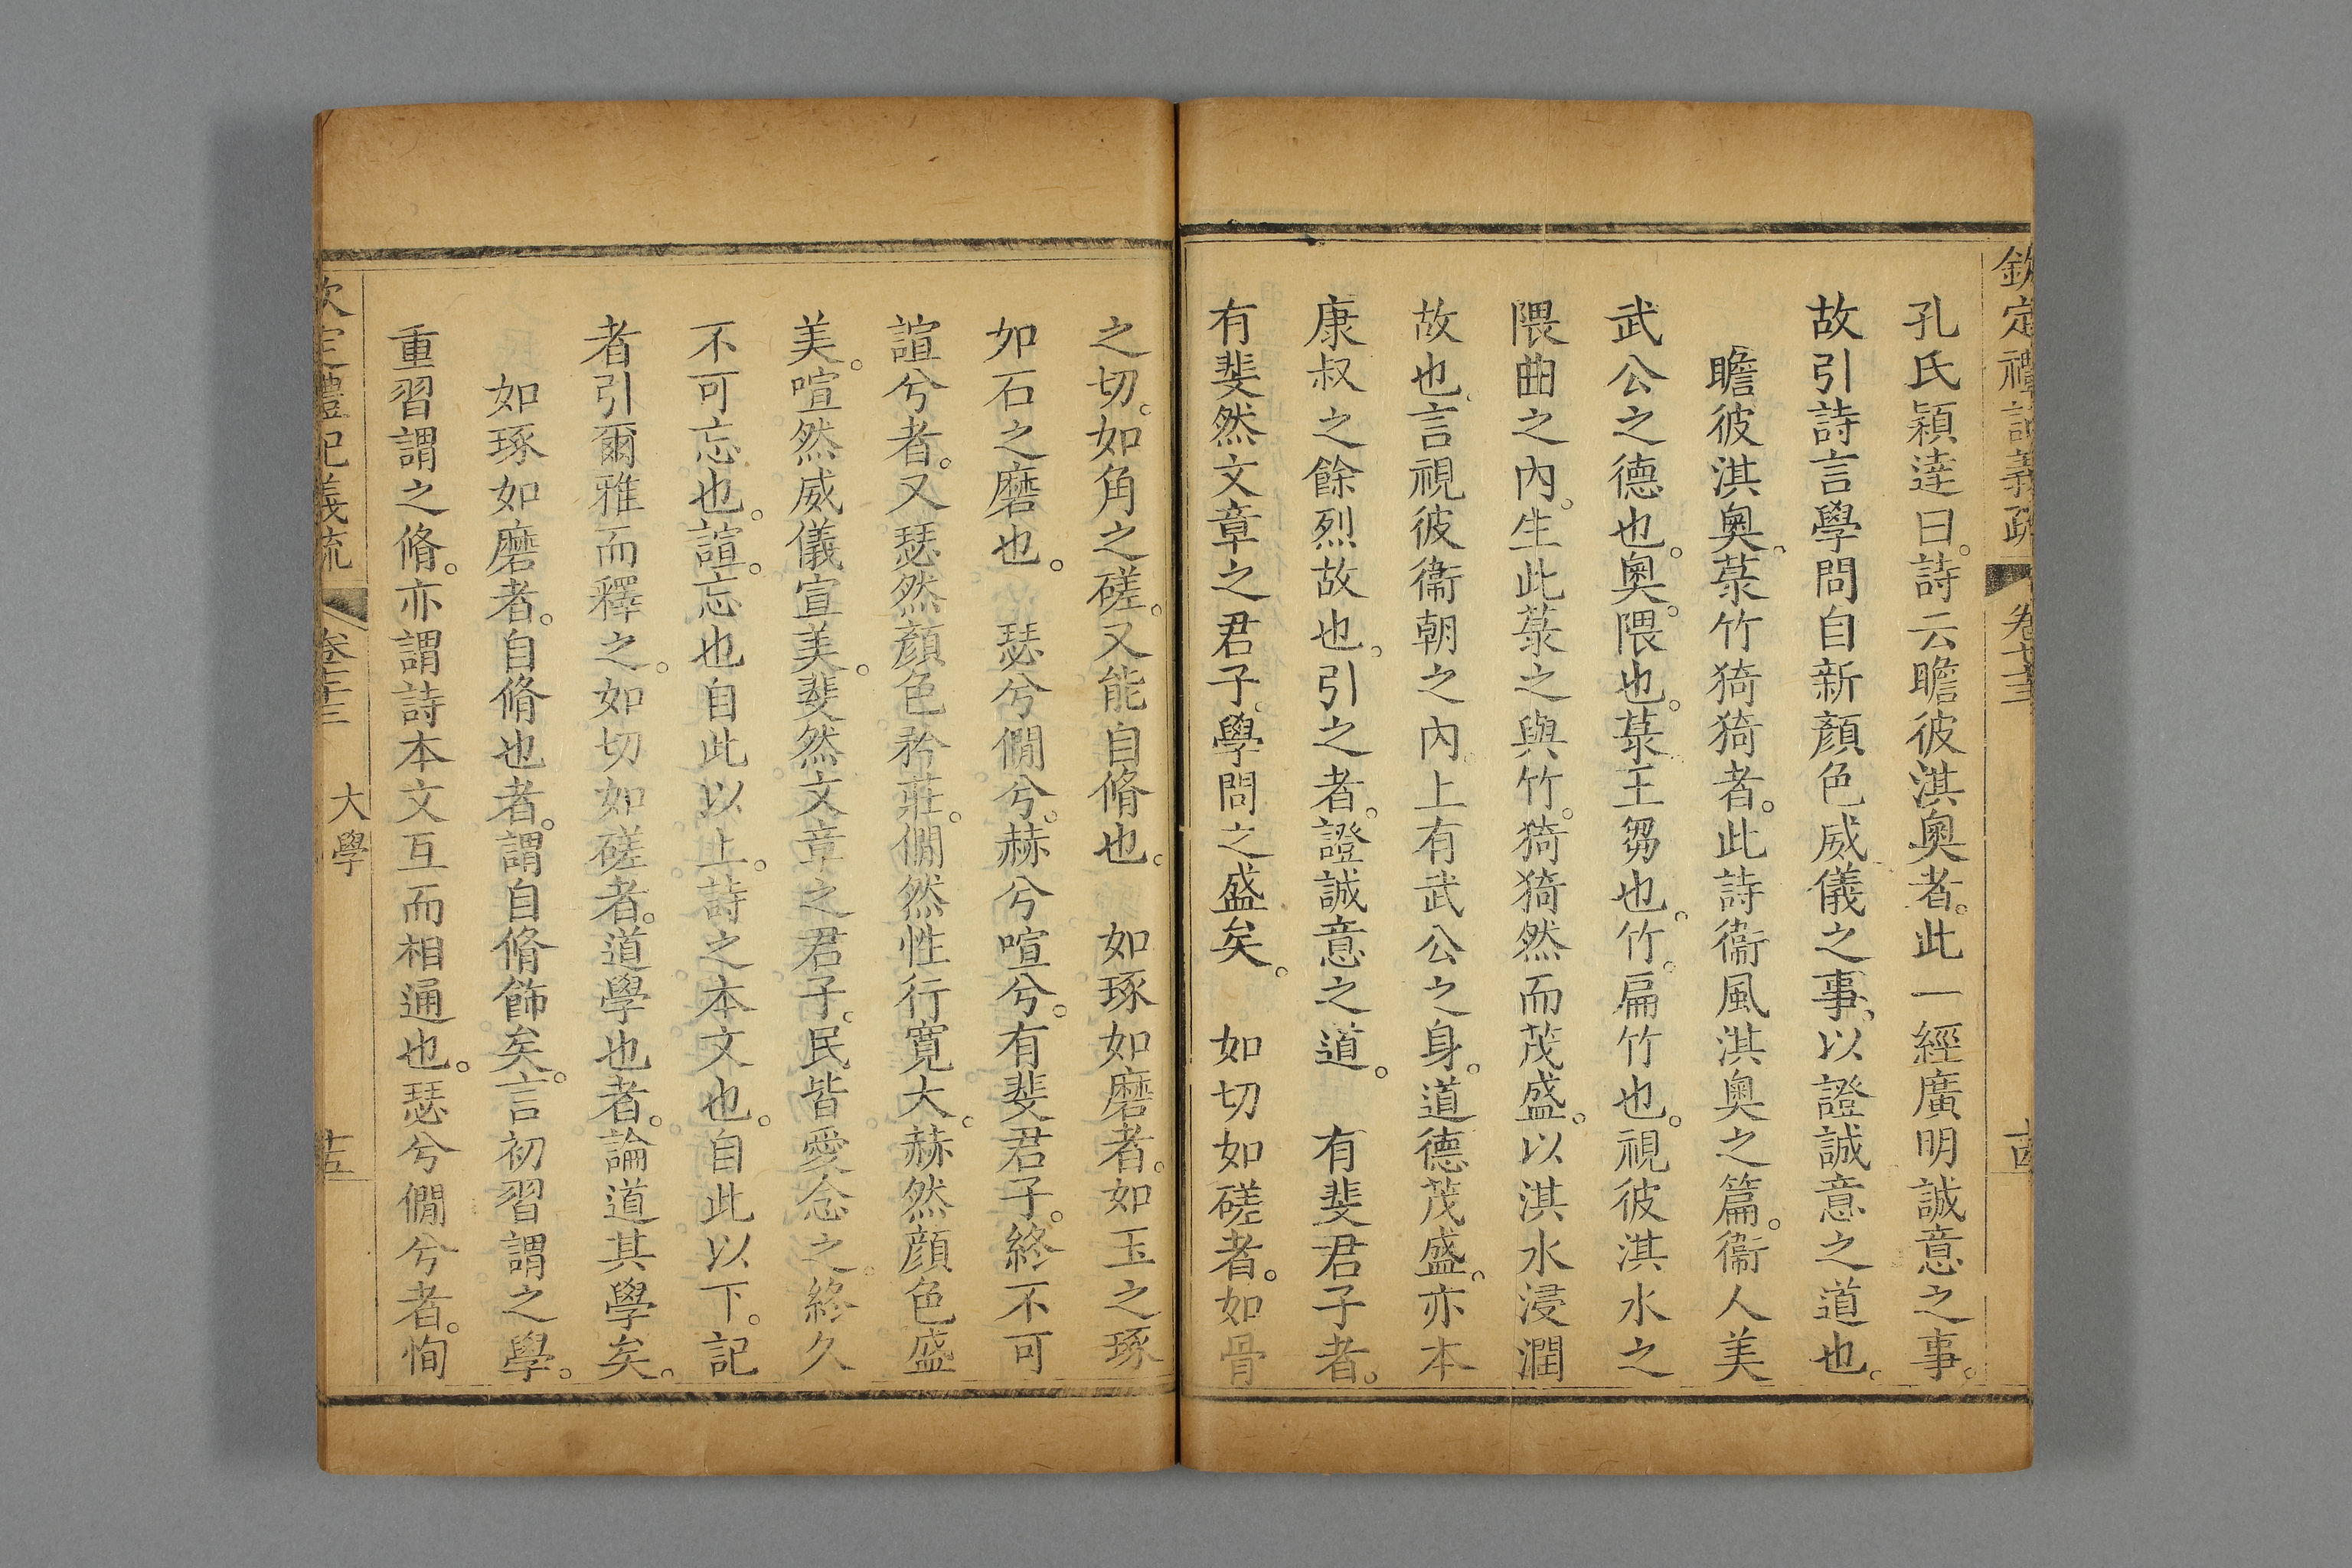 欽定禮記義疏 卷七十三 十四
孔氏穎達曰。詩云瞻彼淇奧者。此一經廣明誠意之事。
故引詩言學問自新顏色威儀之事。以證誠意之道也。
瞻彼淇奧。菉竹猗猗者。此詩衞風淇奧之篇。衞人美
武公之德也。奧。隈也。菉王芻也。竹。扁竹也。視彼淇水之
隈曲之內。生此菉之與竹。猗猗然而茂盛。以淇水浸潤
故也。言視彼衞朝之內。上有武公之身。道德茂盛。亦本
康叔之餘烈故也。引之者。證誠意之道。 有斐君子者。
有斐然文章之君子。學問之盛矣。 如切如磋者。如骨
之切。如角之磋。又能自脩也。 如琢如磨者。如玉之琢
如石之磨也。 瑟兮僩兮。赫兮喧兮。有斐君子。終不可
諠兮者。又瑟然顏色矜莊。僩然性行寬大。赫然顏色盛
美。喧然威儀宣美。斐然文章之君子。民皆愛念之。終久
不可忘也。諠。忘也自此以上。詩之本文也。自此以下。記
者引爾雅而釋之。如切如磋者。道學也者。論道其學矣。
如琢如磨者。自脩也者。謂自脩飾矣。言初習謂之學。
重習謂之脩。亦謂詩本文互而相通也。瑟兮僩兮者。恂
欽定禮記義疏 卷七十三 大學 十五